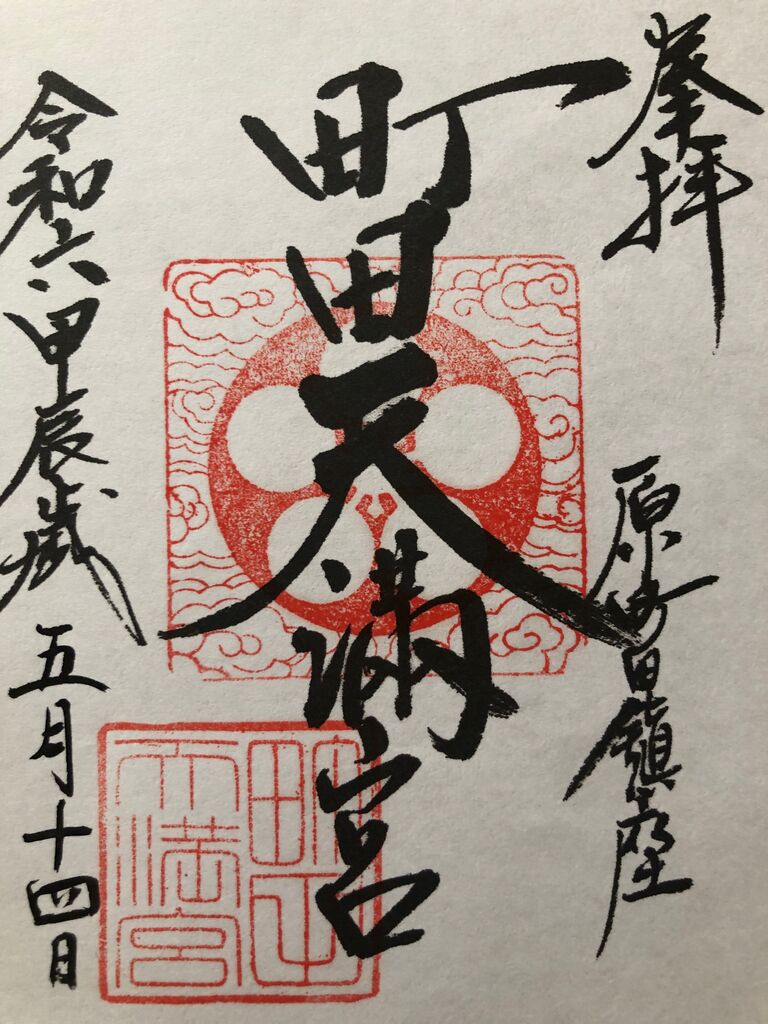 奉拝
原町田鎮座
町田天満宮
令和六甲辰歳 五月十四日
町田
天満宮